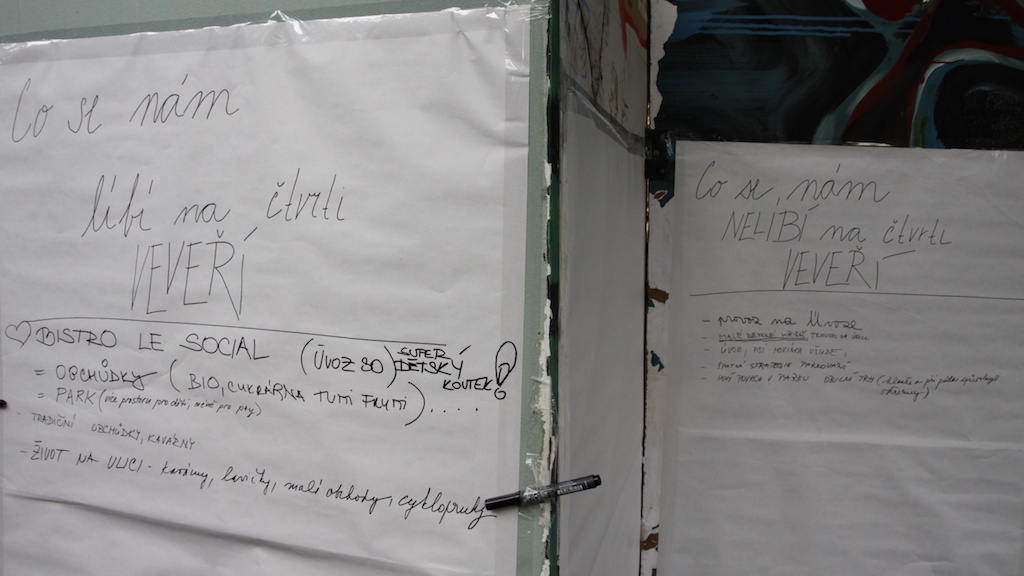 Co se nám
líbí na čtvrti
VEVEŘÍ
BISTRO LE SOCIAL (ÚVOZ 80) SUPER DĚTSKÝ KOUTEK!
= OBCHŮDKY (BIO, CUKRÁRNA TUTTI FRUTTI) .....
= PARK (více prostoru pro děti, méně pro psy)
- TRADIČNÍ OBCHŮDKY, KAVÁRNY
- ŽIVOT NA ULICI - kavárny, lavičky, malé obchody, cyklopruhy
Co se nám
NELÍBÍ na čtvrti
VEVEŘÍ
- provoz na Úvoze
- ÚVOZ, PSÍ HOVÍNKA VŠUDE!